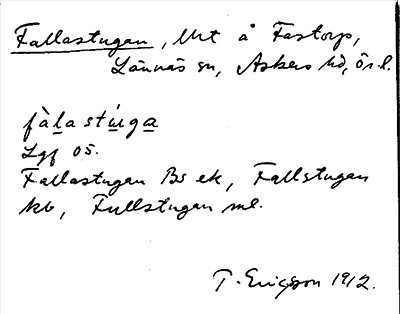 Fallastugan, Utt å Fastorp,
Lännäs sn, Askers hd, Ör. l.
fàlastúga
Lgf 05.
Fallastugan Bs ek, Fallstugan
kb, Fullstugan ml.
T. Ericsson 1912.